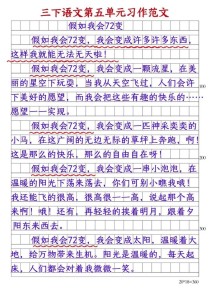 三下语文第五单元习作范文
假如我会72变
假如我会72变，我会变成许多许多东西，
这样我就能无法无天啦！
假如我会72变，我会变成一颗流星，在美
丽的星空下玩耍，当我从天空飞过，人们会许
下美好的愿望，而我会把他们的愿望一一实
现。
假如我会72变，我会变成一匹神采奕奕的
小马，在这广阔的无边无际的草坪上奔跑，啊！
这是那么的快乐，那么的自由自在呀！
假如我会72变，我会变成一串小泡泡，在
温暖的阳光下荡来荡去，你们可别小瞧我哦！
我还能飞的很高，很高很高——高，说起那个高
来啊！哦！还有，再轻轻的挨着明月，跟着夕
阳东来西去。
假如我会72变，我会变成太阳，温暖着大
地，给万物带来生机。阳光是温暖的，每天起
床，人们都会对着我微微一笑。
20*18=360